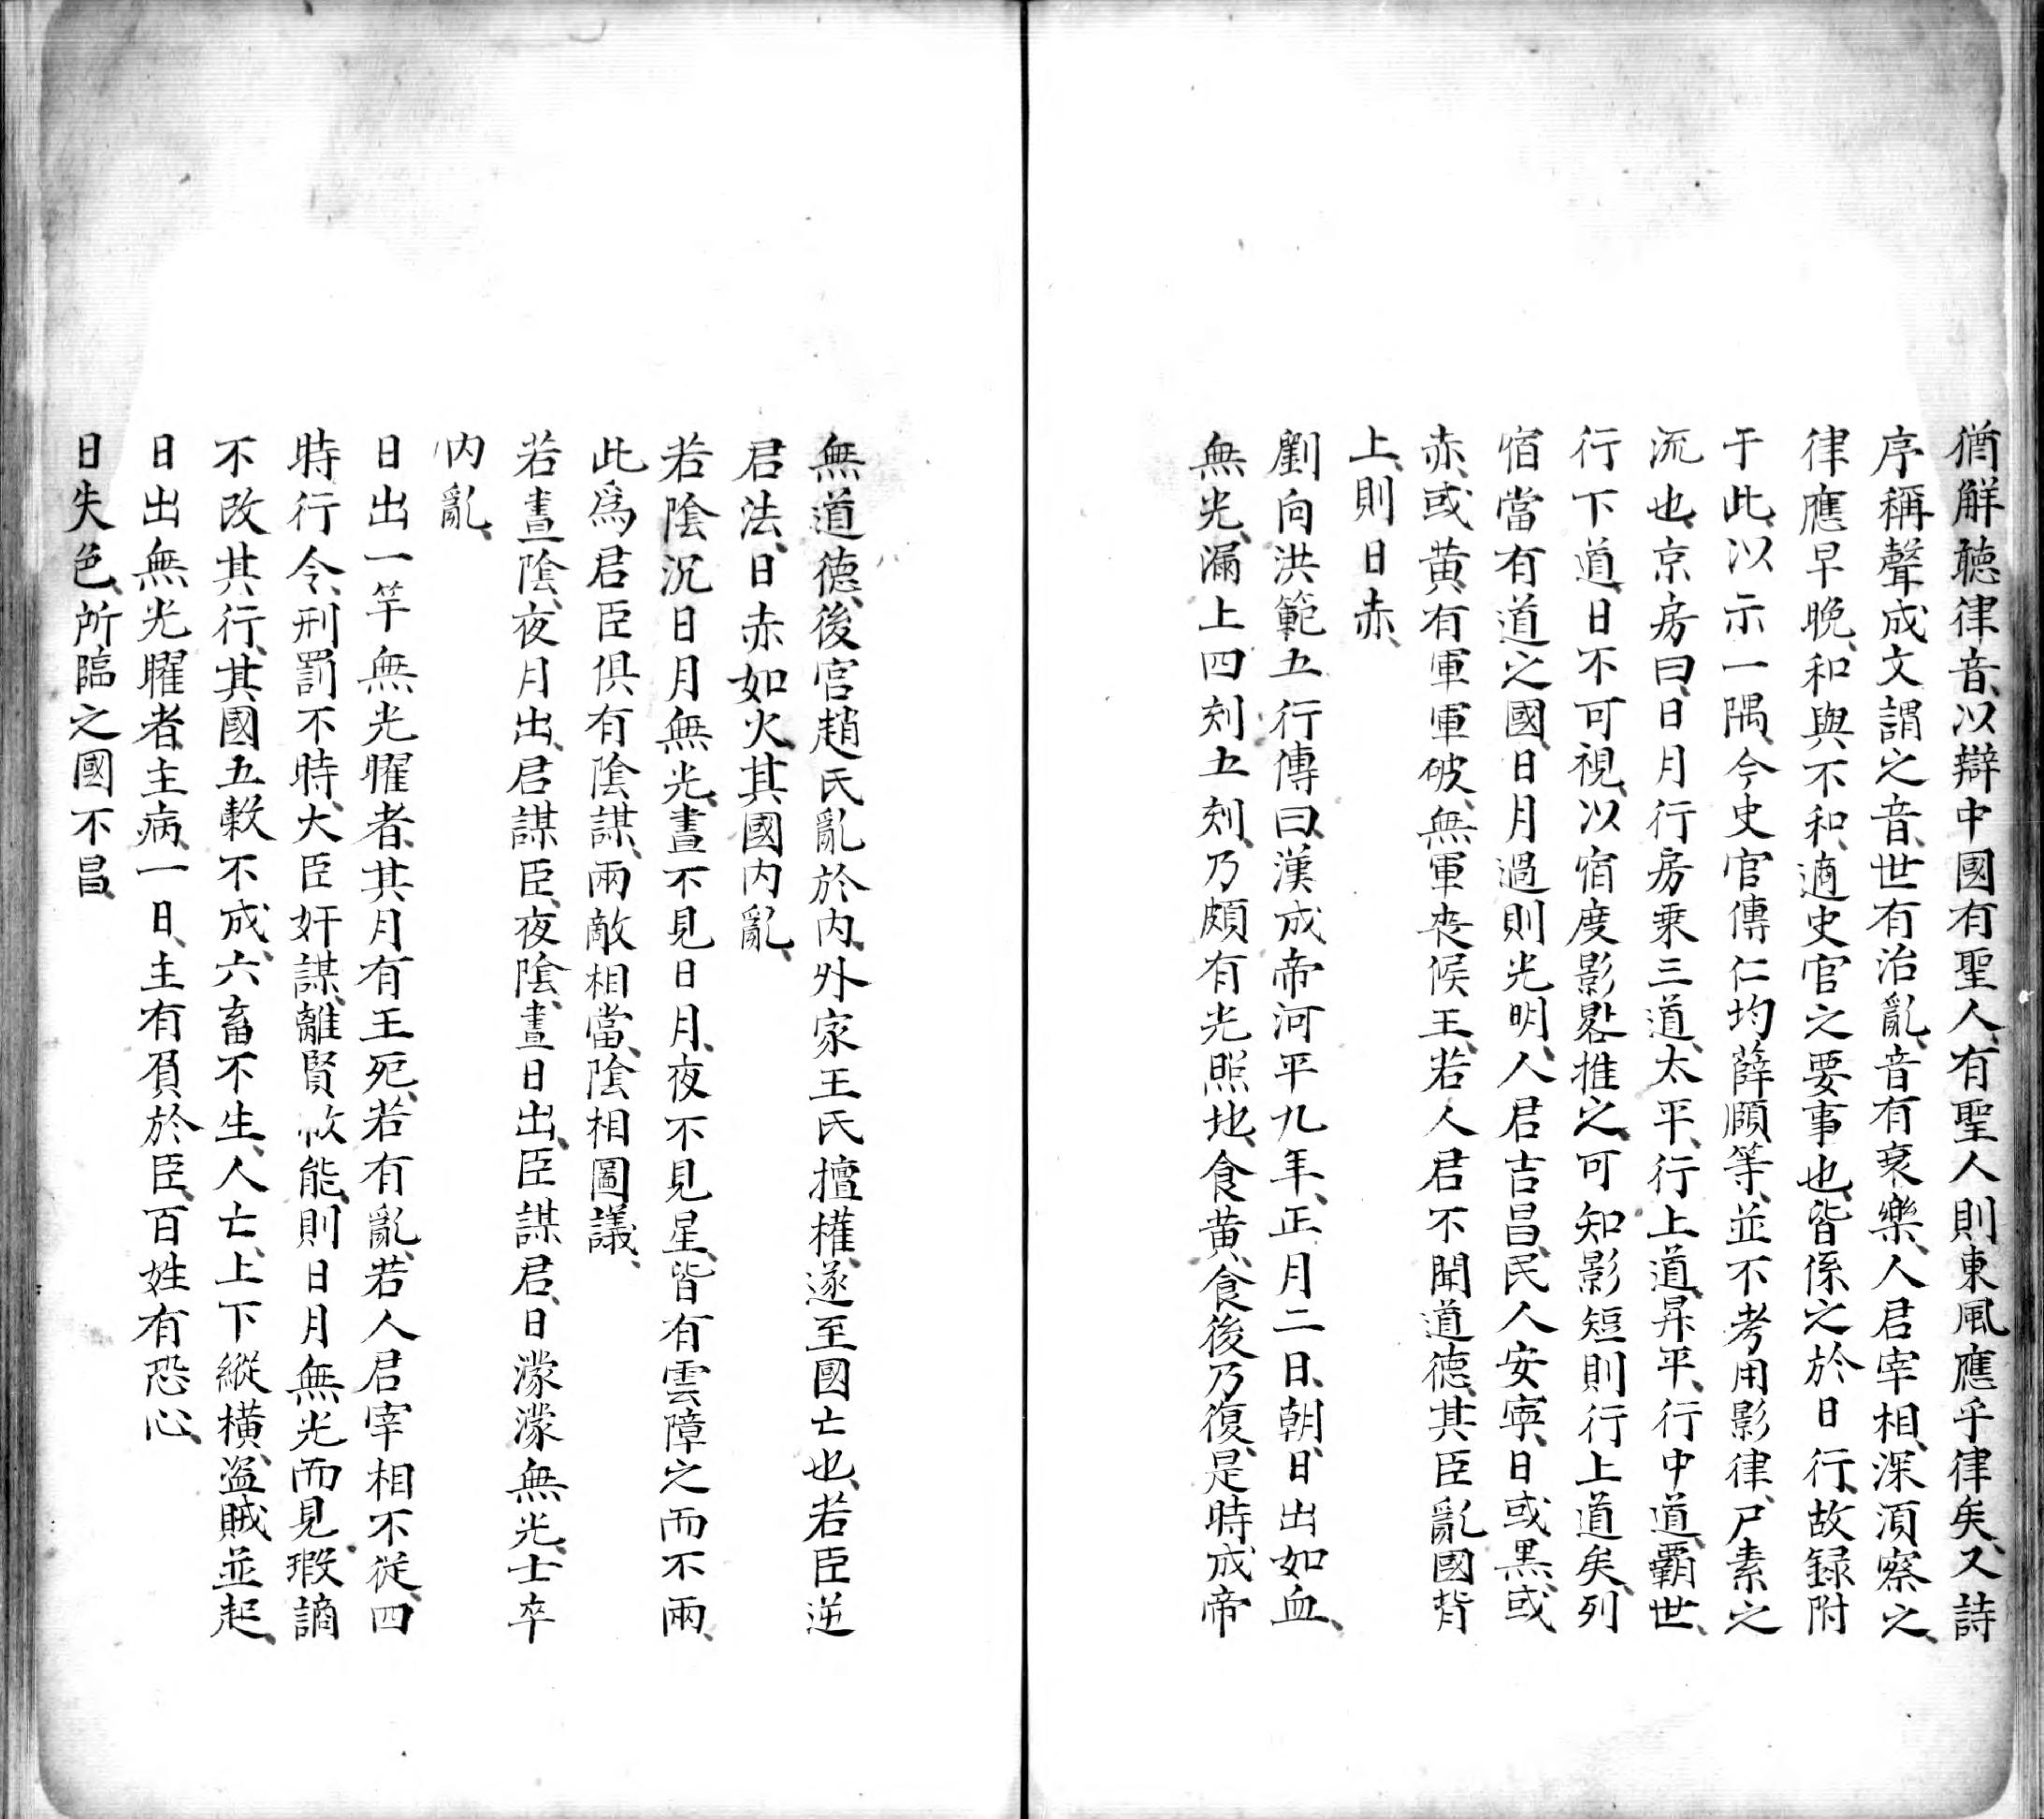 猶解聽律音、以辯中國有聖人、有聖人則東風應乎律矣、又詩
序稱聲成文謂之音、世有治亂、音有哀樂、人君宰相、深須察之、
律應早晚、和與不和、適史官之要事也、皆係之於日行、故録附
于此、以示一隅、今史官傳仁均薛頤等、並不考用影律、尸素之
流也、京房曰、日月行房乗三道、太平、行上道、昇平、行中道、覇世、
行下道、日不可視、以宿度影晷推之、可知影短則行上道矣、列
宿當有道之國日月過則光明、人君吉昌、民人安寧、日或黒、或
赤、或黄、有軍軍破、無軍丧侯王、若人君不聞道德、其臣亂國背
上、則日赤、
劉向洪範五行傳曰、漢成帝河平九年、正月二日、朝、日出如血、
無光、漏上四刻五刻、乃頗有光照地、食黄、食後乃復、是時成帝
無道德、後宮趙氏亂於内、外家王氏擅權、遂至國亡也、若臣逆
君法、日赤如火、其國内亂、
若陰沉日月無光、晝不見日月、夜不見星、皆有雲障之而不雨、
此爲君臣俱有陰謀、兩敵相當、陰相圖議、
若晝陰、夜月出、君謀臣、夜陰、晝日出、臣謀君、日濛濛無光、士卒
内亂、
日出一竿無光曜者、其月有王死、若有亂、若人君宰相不從、四
時行令、刑罰不時、大臣奸謀、離賢攸能、則日月無光而見瑕謫
不改其行、其國五穀不成、六畜不生、人亡、上下縱横、盗賊並起、
日出無光曜者、主病、一日、主有負於臣、百姓有恐心、
日失色、所臨之國不昌、